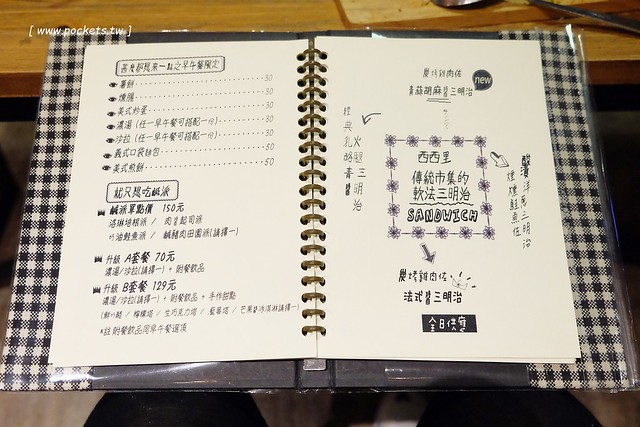 [ www.pockets.tw ]
甚麼都馬來一點之早午餐限定
薯餅 30
燻腸 30
美式炒蛋 30
濃湯 (任一早午餐可搭配一份) 30
沙拉 (任一早午餐可搭配一份) 30
義式口袋麵包 50
美式煎餅 50
就只想吃鹹派
鹹派單點價 150元
洛林培根派 / 肉醬起司派
奶油鮭魚派 / 鹹豬肉田園派(請擇一)
升級 A套餐 70元
濃湯/沙拉(請擇一) + 附餐飲品
升級 B套餐 129元
濃湯/沙拉(請擇一) + 附餐飲品 + 手作甜點
檸檬塔 / 生巧克力塔 / 藍莓塔 / 芒果醬冰淇淋請擇一)
*註 附餐飲品同早午餐選項
炭烤雞肉佐
new
青蒜胡麻醬三明治
經典乳酪青醬
火腿三明治
西西里
傳統市集的
軟法三明治
SANDWICH
酸漬洋蔥三明治
煙燻鮭魚佐
炭烤雞肉佐
法式醬三明治
全日供應